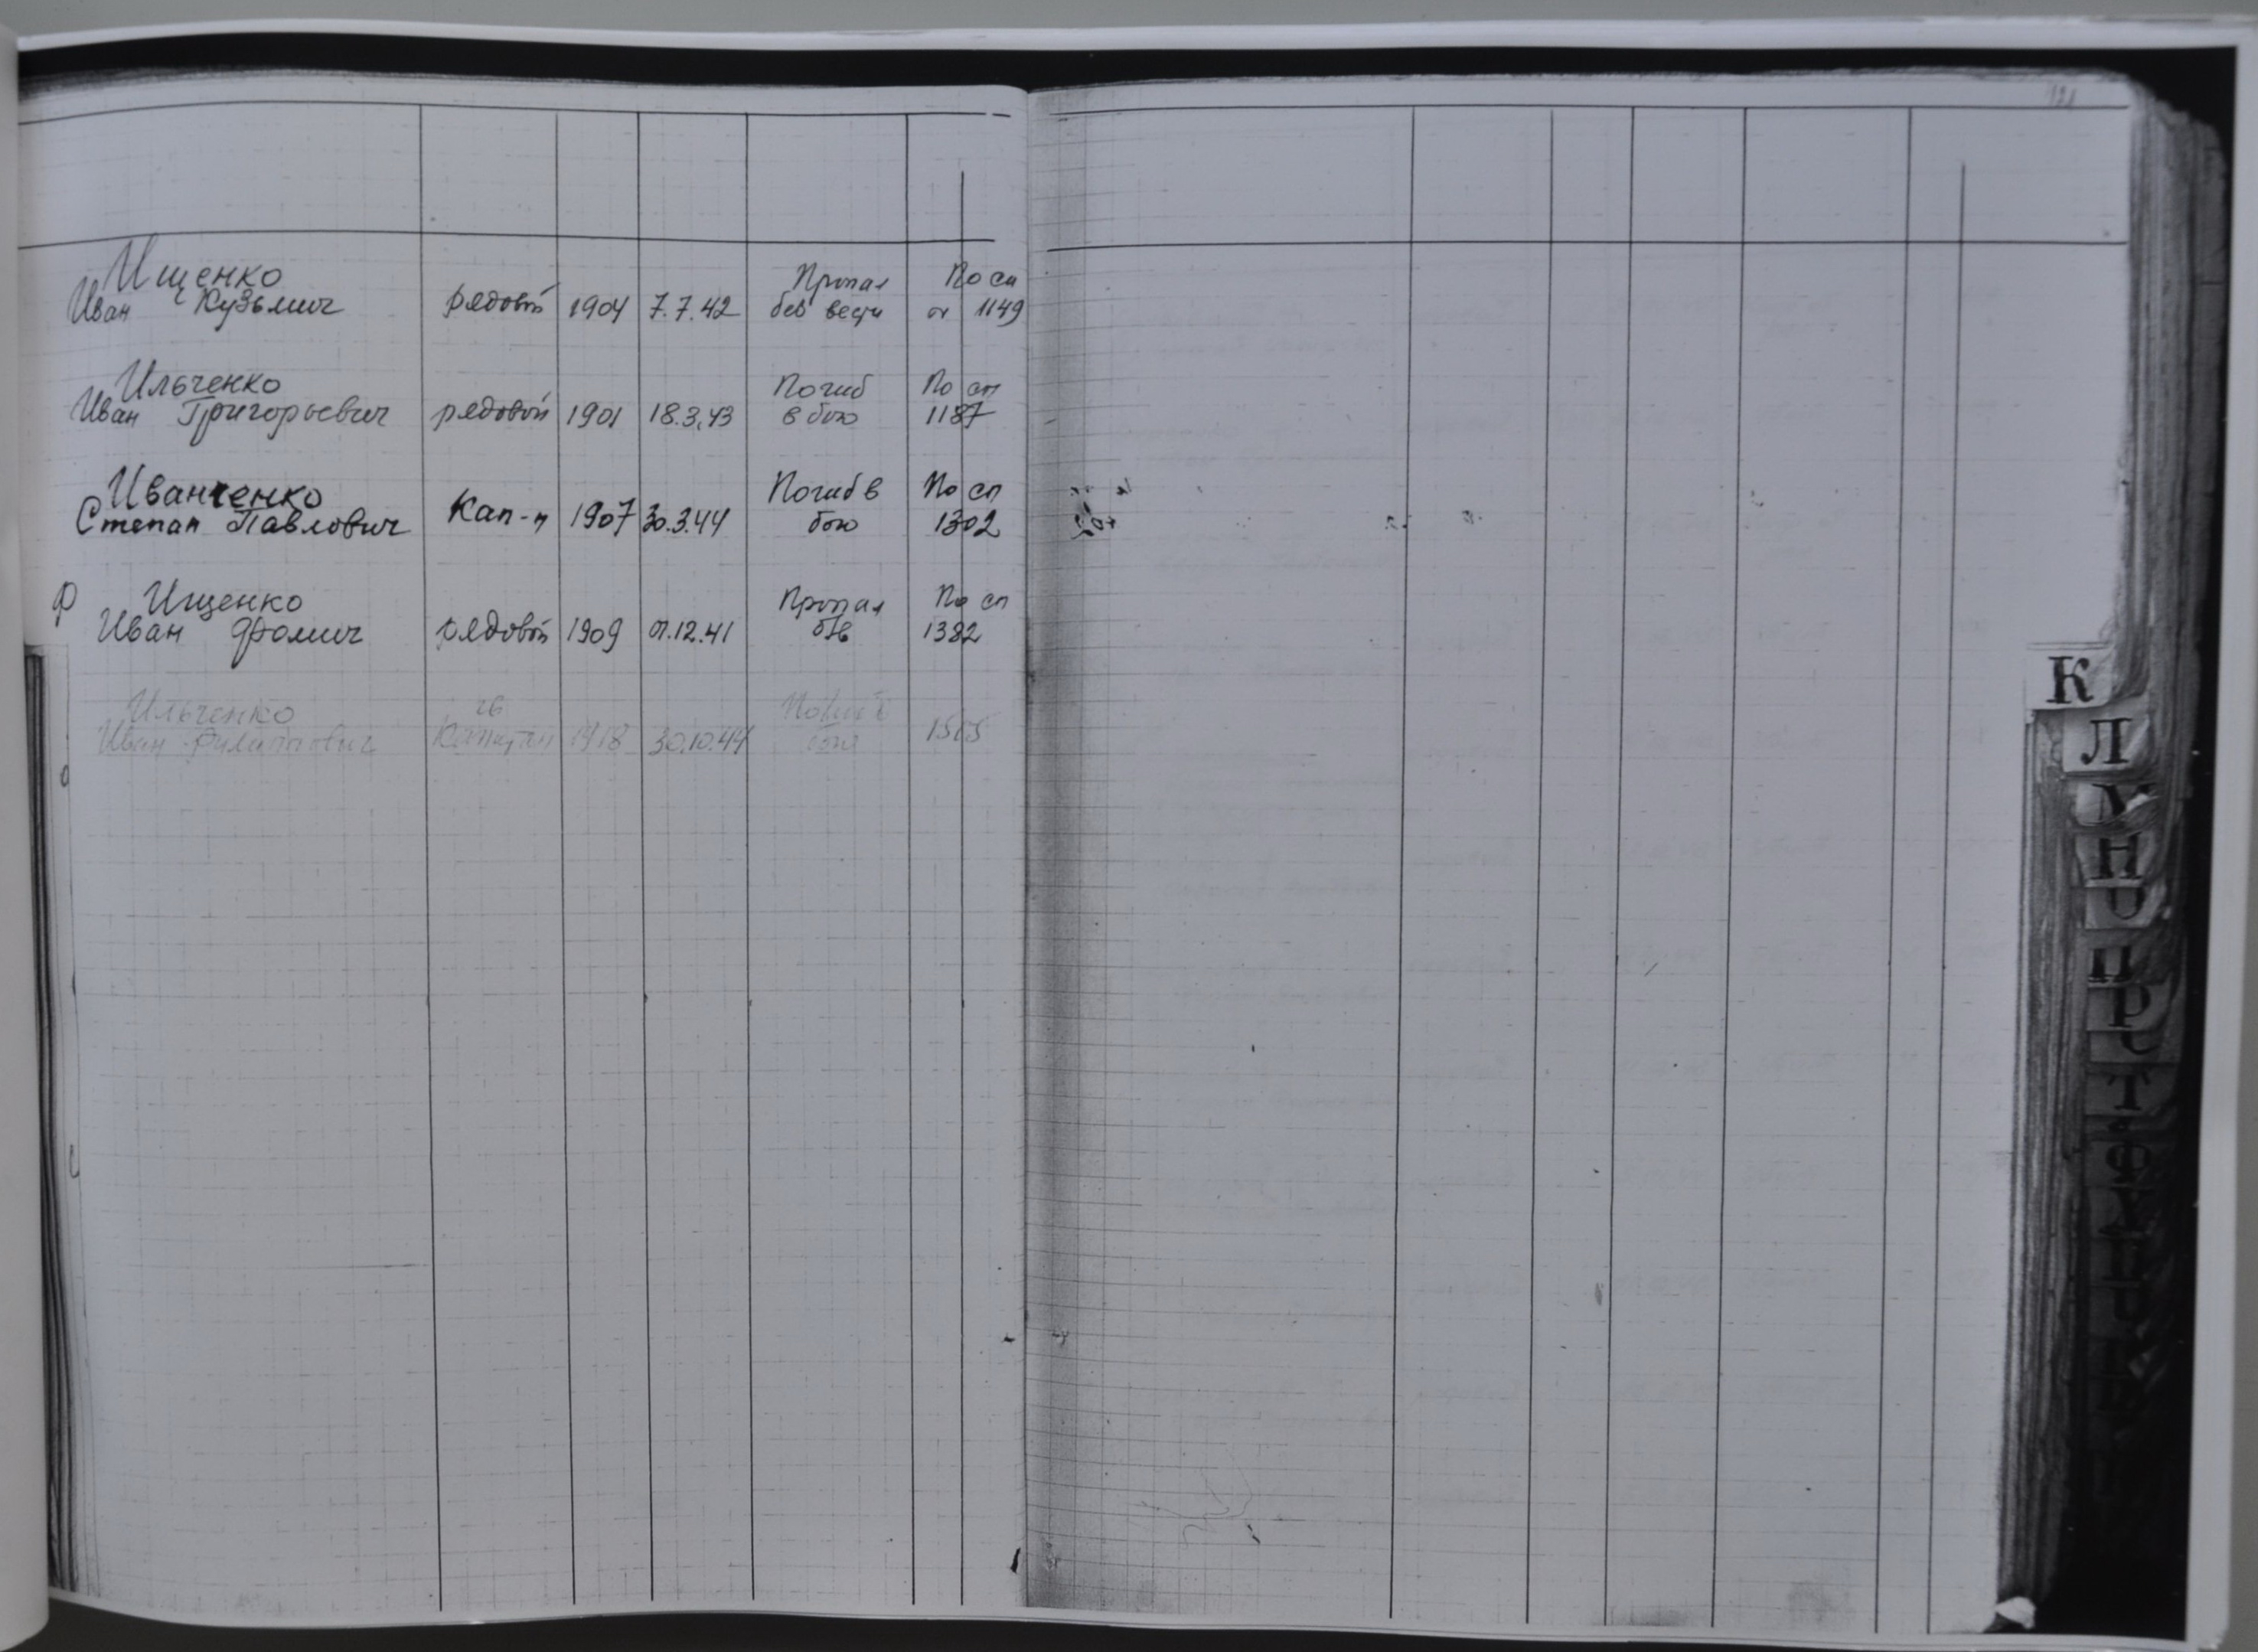 Ищенко
Иван Кузьмич рядовой 1904 7.7.42 Пропал без вести По сп от 1149
Ильченко
Иван Григорьевич рядовой 1901 18.3.43 Погиб в бою По сп 1187
Иванченко
Степан Павлович Кап-н 1907 30.3.44 Погиб в бою По сп 1302
Ф Ищенко
Иван Фомич рядовой 1909 01.12.41 Пропал б/в По сп 1382
Ильченко
Иван Филиппович гв Капитан 1918 30.10.44 Погиб
К
Л
Н
О
П
Р
С
Т
Ф